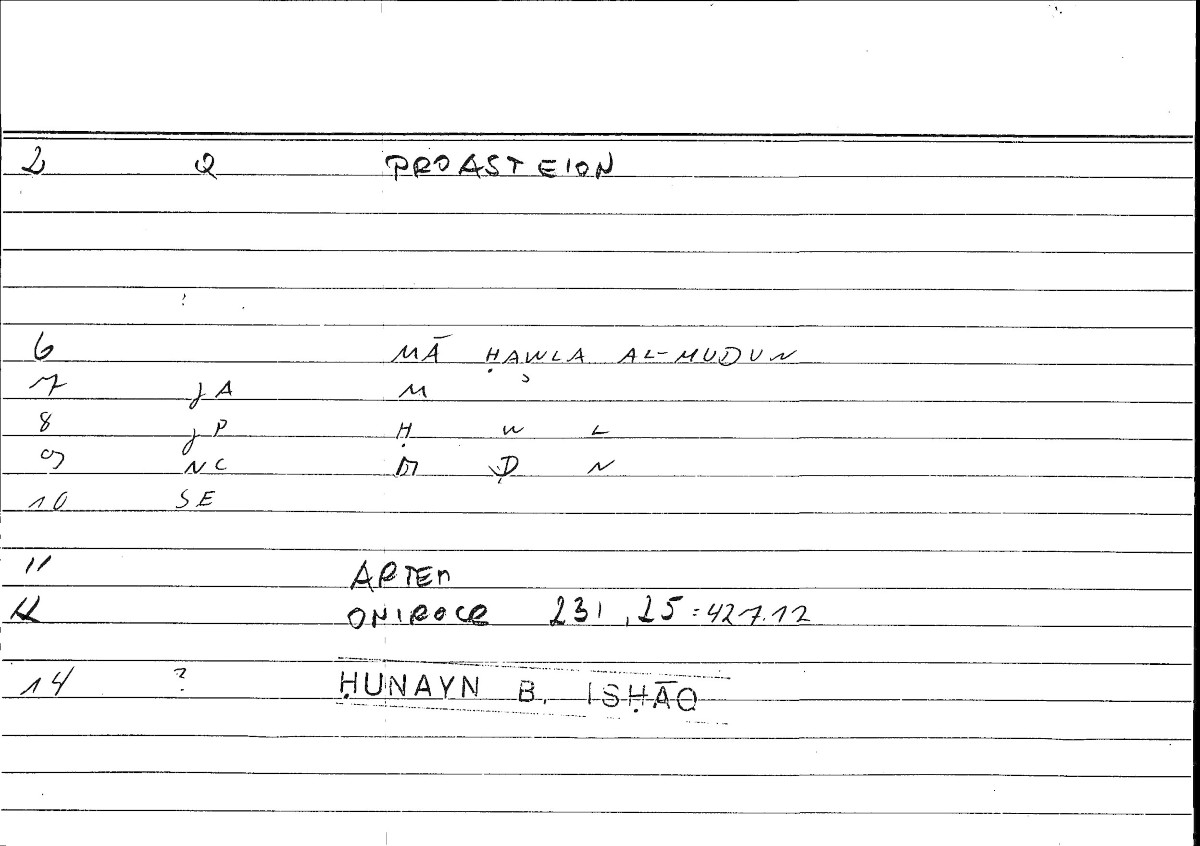 2 Q PROASTEION
6 MĀ ḤAWLA AL-MUDUN
7 JA M
8 JP Ḥ W L
9 NC M D N
10 SE
11 ARTEM
12 ONIROCR 231,25:427.12
14 ? ḤUNAYN B. ISḤĀQ